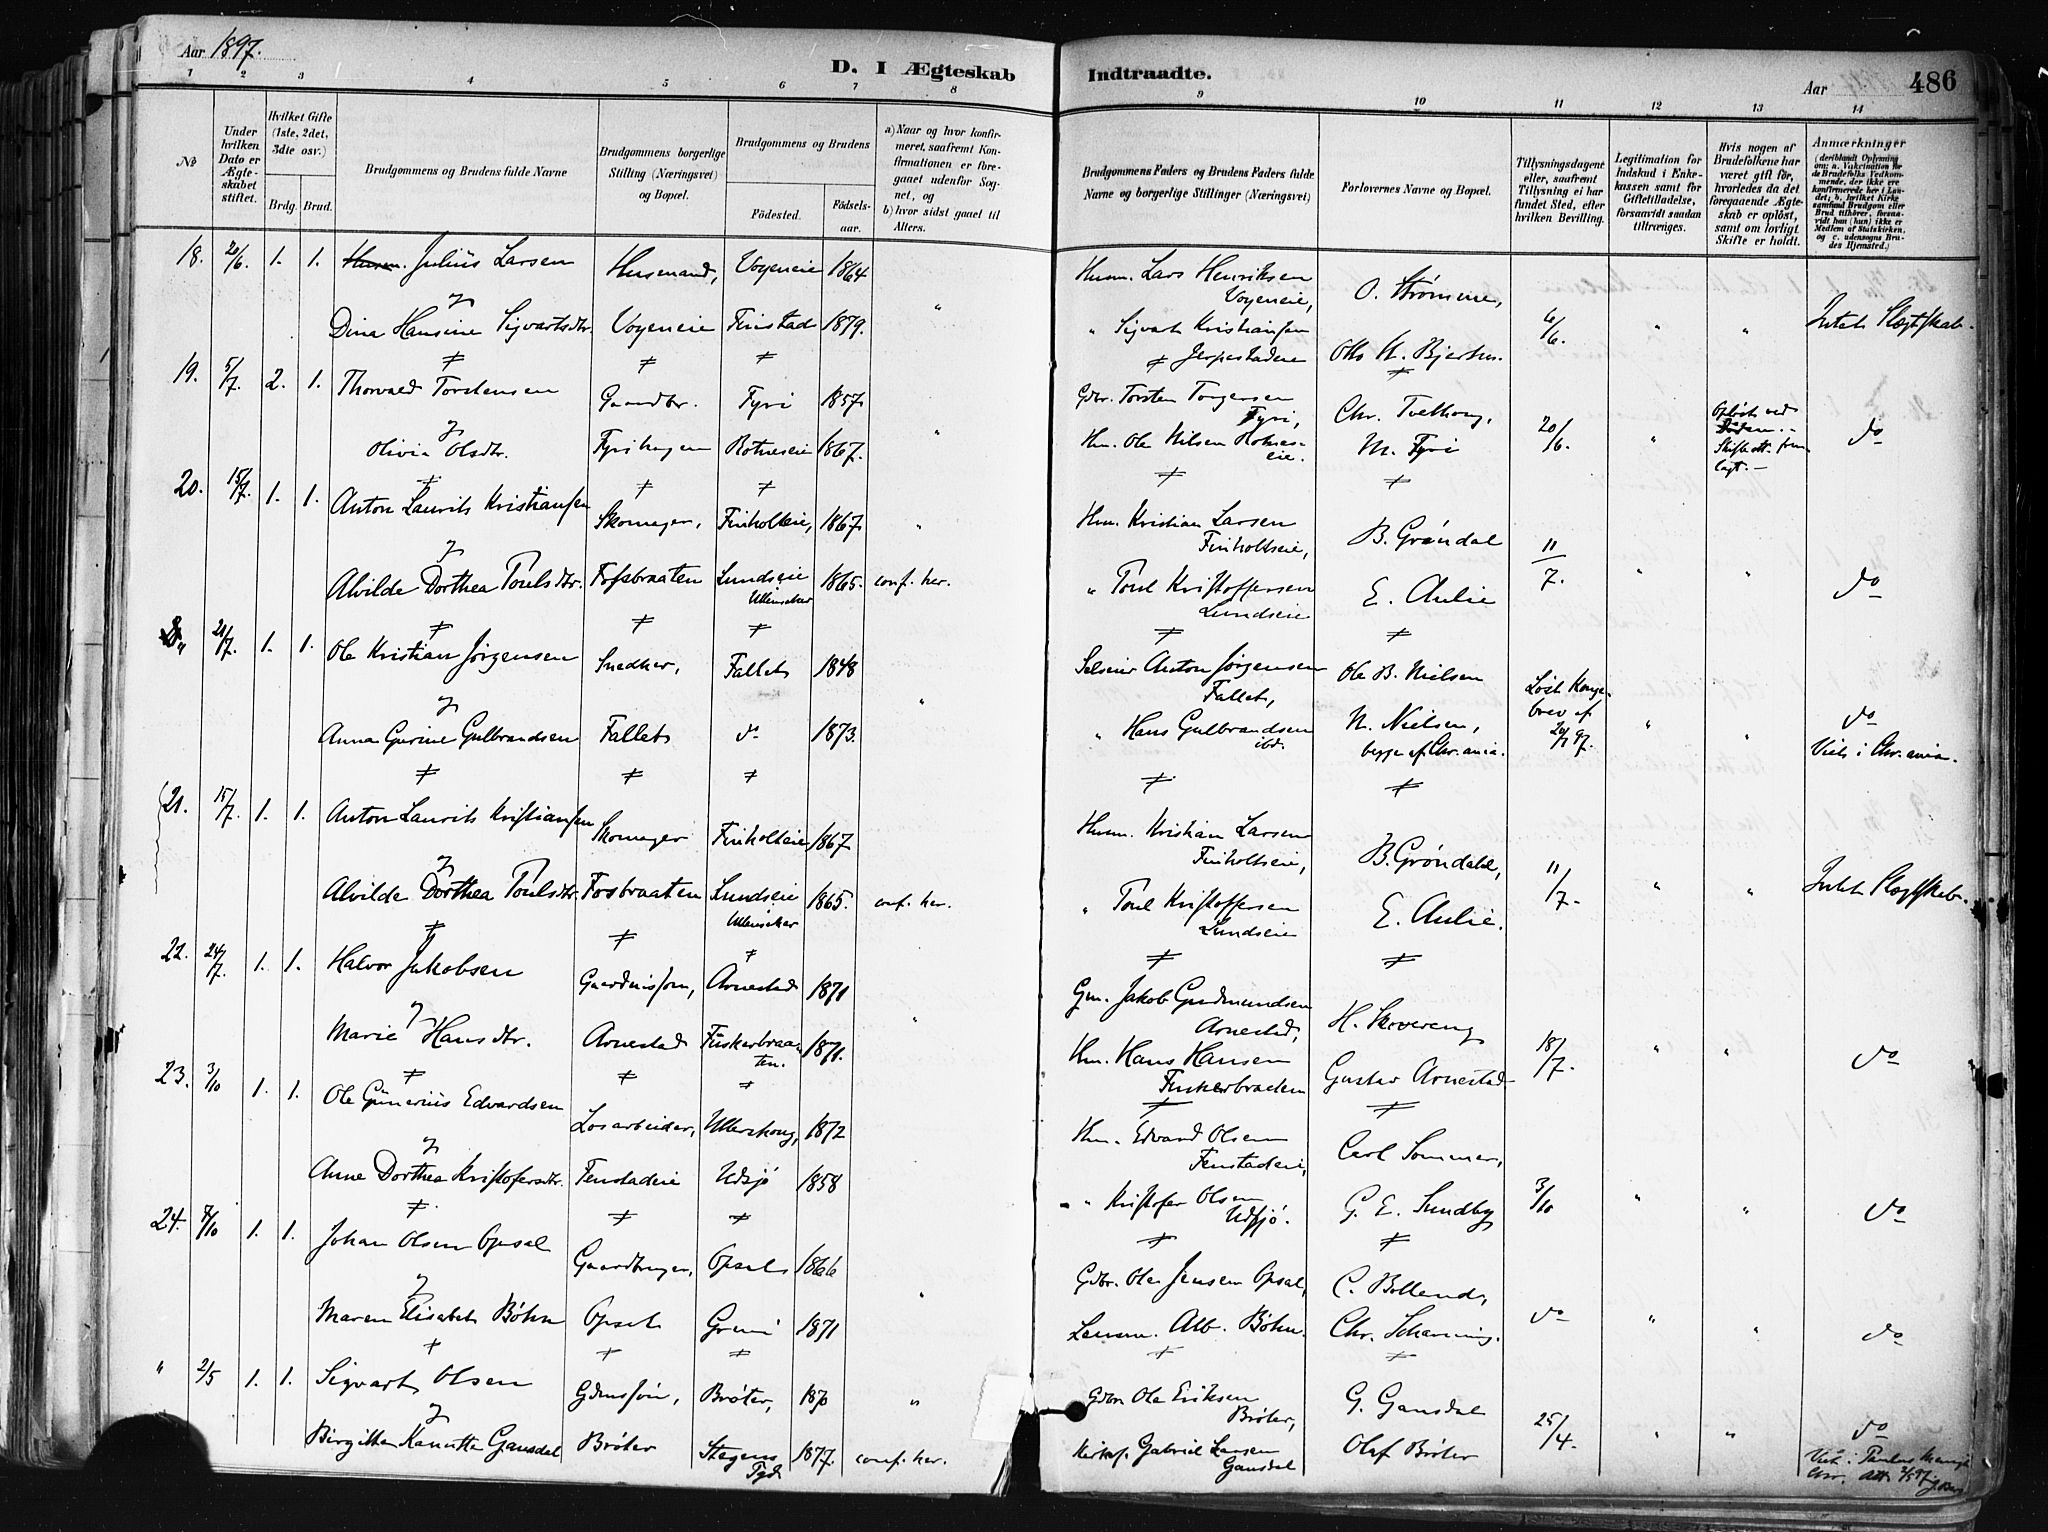 Aar 1897.
D. I Ægteskab Indtraadte.
Aar 486
1 2 3 4 5 6 7 8 9 10 11 12 13 14
No
Under hvilken Dato er Ægteskabet stiftet.
Hvilket Gifte (1ste, 2det, 3die osv.)
Brdg. Brud.
Brudgommens og Brudens fulde Navne
Brudgommens borgerlige Stilling (Næringsvei) og Bopæl.
Brudgommens og Brudens
Fødested. Fødselsaar.
a) Naar og hvor konfirmeret, saafremt Konfirmationen er foregaaet udenfor Sognet, og
b) hvor sidst gaaet til Alters.
Brudgommens Faders og Brudens Faders fulde Navne og borgerlige Stillinger (Næringsvei)
Forlovernes Navne og Bopæl.
Tillysningsdagent eller, saafremt Tillysning ei har fundet Sted, efter hvilken Bevilling.
Legitimation for Indskud i Enkekassen samt for Giftetilladelse, forsaavidt saadan tiltrænges.
Hvis nogen af Brudefolkene har været gift før, hvorledes da det foregaaende Ægteskab er opløst, samt om lovligt Skifte er holdt.
Anmærkninger
18. 20/6. 1. 1. Julius Larsen Husmand, Vogeneie 1864 Husm. Lars Henriksen Vogeneie, O. Strømme,
Dina Hansine Sigvartsdtr. Vogeneie Finstad 1879. " " Sigvat Kristiansen Jerpestadeie Otto N. Bjerkn. 6/6. " " Intet Slægtskab.
19. 5/7. 2. 1. Thorvald Torstensen Gaardbr. Fyri 1857. Gdbr. Torsten Torgersen Fyri, Chr. Tvethoug, Opløst ved Døden.-
Olivia Olsdtr. Fyrihagen Rotneseie 1867. " Hm. Ole Nilsen Rotneseie. M. Fyri 20/6. " Skifteatt. fremlagt.- do
20. 15/7. 1. 1. Anton Laurits Kristiansen Skomager, Finholteie, 1867. " Hm. Kristian Larsen Finholtseie, B. Grøndal 11/7.
Alvilde Dorthea Poulsdtr. Fossbraaten Lundseie Ullensaker 1865. conf. her. " Poul Kristoffersen Lundseie E. Aulie " " do
21/7. 1. 1. Ole Kristian Jørgensen Snedker, Fallet 1848 Selveier Anton Jørgensen Fallet, Ole B. Nielsen Løst Kongebrev af 20/7 97.
Anna Gurine Gulbrandsen Fallet do 1873. " " Hans Gulbrandsen ibd. N. Nielsen, begge af Chr.ania. " " do Viet i Chr.ania.
21. 15/7. 1. 1. Anton Laurits Kristiansen Skomager Finholteie 1867. Husm. Kristian Larsen Finholtseie, B. Grøndahl, 11/7.
Alvilde Dorthea Poulsdtr. Fosbraaten Lundseie Ullensaker 1865. conf. her. " Poul Kristoffersen Lundseie E. Aulie. " " Intet Slægtskab.
22. 24/7. 1. 1. Halvor Jakobsen Gaardmissøn, Arnestad 1871 Gm. Jakob Gudmundsen Arnestad, H. Skovereng
Marie Hansdtr. Arnestad Fuskerbraaten. 1871. " Hm. Hans Hansen Fuskerbraaten Gustav Arnestad 18/7. " " do
23. 3/10 1. 1. Ole Gunerius Edvardsen Løsarbeider, Ullerskoug, 1872 Hm. Edvard Olsen Fenstadeie, Carl Sommer,
Anne Dorthea Kristofersdtr. Fenstadeie Udsjø 1858 " Kristofer Olsen Udsjø. G. E. Sundby 3/10 " " do
24. 7/10 1. 1. Johan Olsen Opsal Gaardbruger, Opsal 1866 Gdbr. Ole Jensen Opsal, C. Bolland,
Maren Elisabet Bøhn Opsal Greni 1871 " Lensm. Alb. Bøhn. Chr. Schanning. do " " do
" 2/5 1. 1. Sigvart Olsen Gdmssøn, Brøter, 1870 " Gdbr. Ole Eriksen Brøter, G. Gansdal
Birgitte Kanutte Gansdal Brøter Stegens Fgd. 1877. conf. her. Kirks. Gabriel Larsen Gansdal Olaf Brøter 25/4. " " do